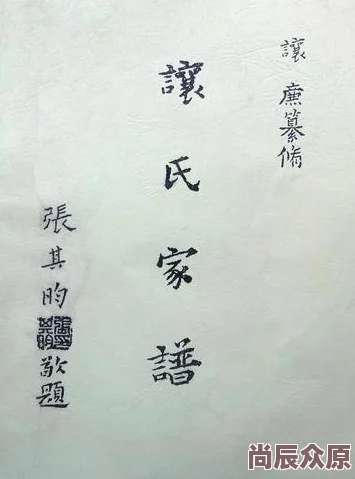 讓廉纂脩
讓氏家譜
張其昀敬題
尚辰众原